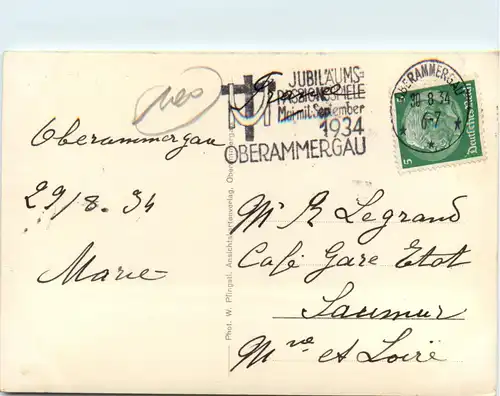 neo
JUBILÄUMS=
PASSIONSSPIELE
Mai mit September
1934
OBERAMMERGAU
OBERAMMERGAU
30·8·34
6-7
5
Deutsches Reich
Oberammergau
29/8. 34
Marie
Mr R Legrand
Café Gare Etat
Saumur
Mne et Loire
Phot. W. Pfingstl, Ansichtskartenverlag, Oberammergau